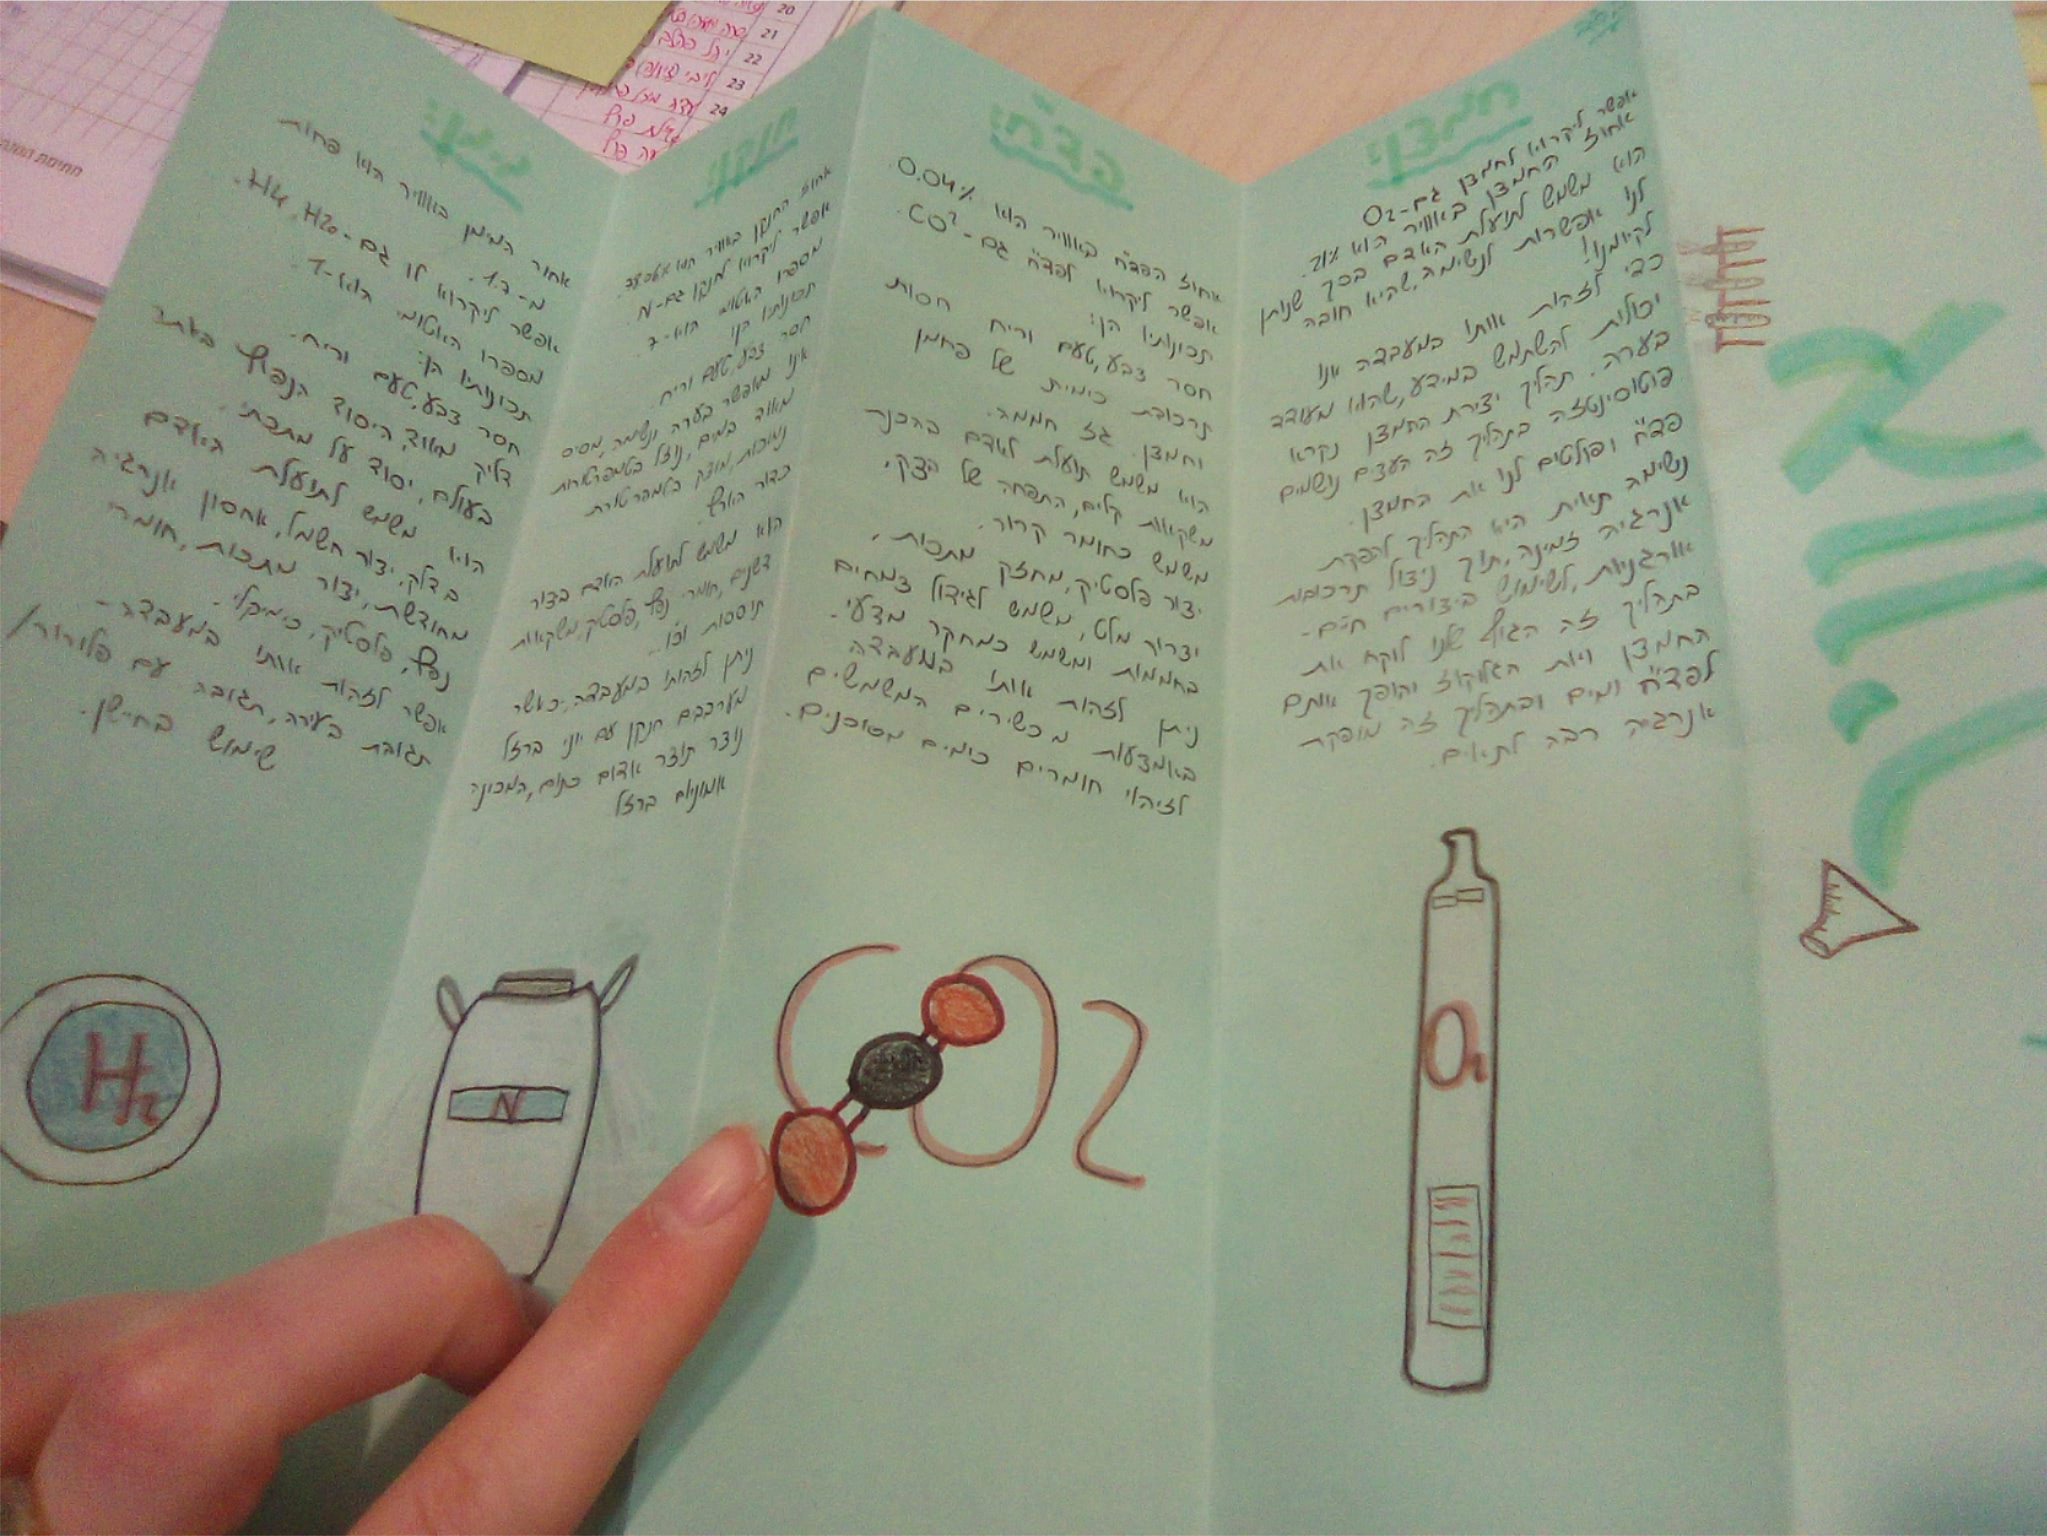 חמצן:
אפשר ליקרוא לחמצן גם-O2
אחוז החמצן באוויר הוא 21%.
הוא משמש לתועלת האדם בכך שנותן
לנו אפשרות לנשימה, שהיא חובה
לקיומנו!
כדי לזהות אותו במעבדה אנו
יכולות להשתמש במידע, שהוא מעודד
בערה. תהליך יצירת החמצן נקרא
פוטוסינטזה בתהליך זה העצים נושמים
פד"ח ופולטים לנו את החמצן.
נשימה תאית היא התהליך להפקת
אנרגיה זמינה, תוך ניצול תרכובות
אורגניות, לשימוש ביצורים חיים-
בתהליך זה הגוף שלנו לוקח את
החמצן ואת הגלוקוז והופך אותם
לפד"ח ומים ובתהליך זה מופקת
אנרגיה רבה לתאים.
O2
הפד"ח:
אחוז הפד"ח באוויר הוא 0.04%
אפשר ליקרוא לפד"ח גם-CO2.
תכונותיו הן:
חסר צבע, טעם וריח חסות
תרכובת כימית של פחמן
וחמצן. גז חממה.
הוא משמש תועלת לאדם בהכנת
משקאות קלים, התפחה של בצק,
משמש כחומר קרור.
יצור פלסטיק, מחזק מתכות,
יצרור מלט, משמש לגידול צמחים
בחממות ומשמש כמחקר מדעי.
ניתן לזהות אותו במעבדה
באמצעות מכשירים המשמשים
לזיהוי חומרים כימים מסוכנים.
CO2
חנקן:
אחוז החנקן באוויר הוא
אפשר ליקרוא לחנקן גם-N.
מספרו האטומי הוא-7.
תכונותיו הן:
חסר צבע, טעם וריח.
אינו מאפשר בערה ונשימה, מסיס
מאוד במים, נוזל בטמפרטורות
נמוכות, מוצק בטמפרטורת
כדור הארץ.
הוא משמש לתועלת האדם ביצור
דשנים, חומרי נפץ, פלסטיק, משקאות
תוססות וכו...
ניתן לזהותו במעבדה, כאשר
מערבבים חנקן עם יוני ברזל
נוצר תוצר אדום כתום, המכונה
אמוניום ברזל
N
מימן:
אחוז המימן באוויר הוא פחות
מ-1%.
אפשר ליקרוא לו גם-H2O, H4.
מספרו האטומי הוא-1.
תכונותיו הן:
חסר צבע, טעם וריח.
דליק מאוד, היסוד הנפוץ ביותר
בעולם, יסוד על מתכתי.
הוא משמש לתועלת האדם
בדלק, יצור חשמל, אחסון אנרגיה
מחודשת, יצור מתכות, חומרי
נפץ, פלסטיק, כימיקלי-
אפשר לזהות אותו במעבדה-
תגובת בעירה, תגובה עם פלורור/
שימוש בחיישן.
H2
20
21
22
23
24